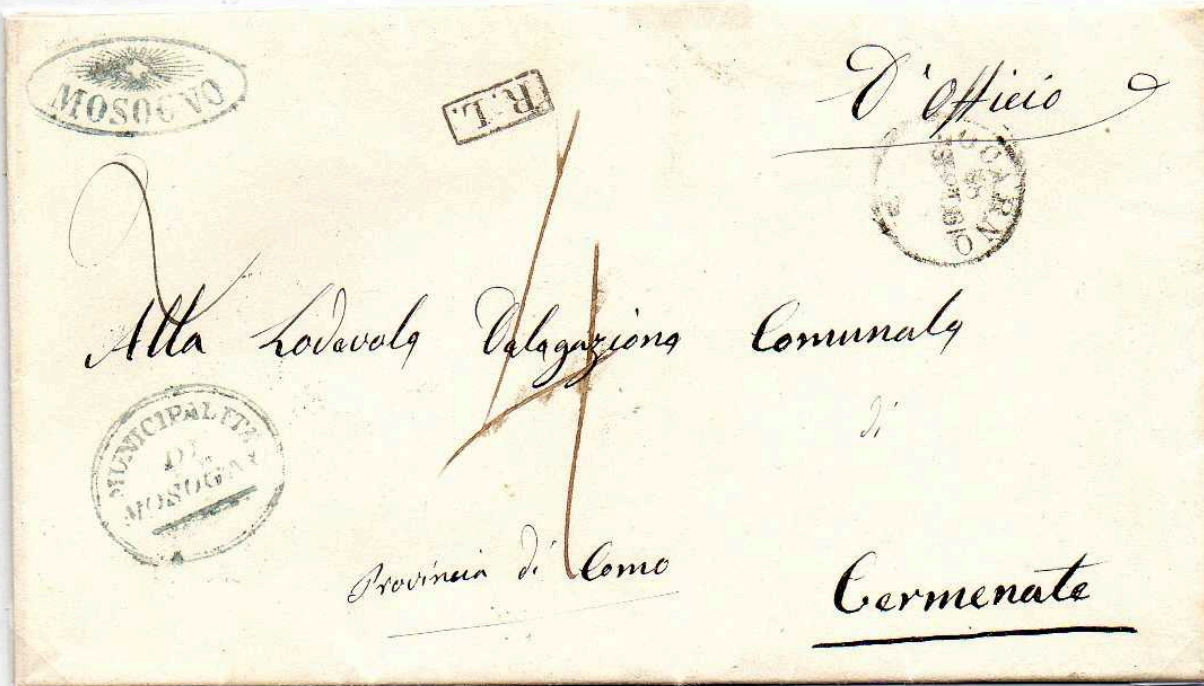 MOSOGNO
R.L.
D'Officio
4
Alla Lodevole Delegazione Comunale
di
MUNICIPALITÀ
DI
MOSOGNO
Provincia di Como
Cermenate